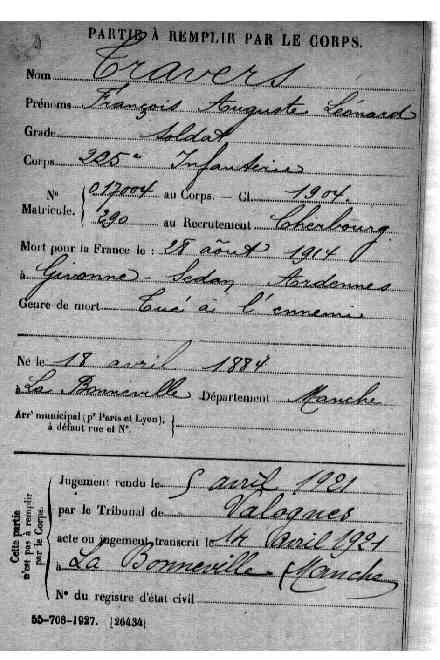 PARTIE À REMPLIR PAR LE CORPS.
Nom Travers
Prénoms François Auguste Léonard
Grade Soldat
Corps 225e Infanterie
N° Matricule. { 017004 au Corps. — Cl. 1904.
290 au Recrutement Cherbourg
Mort pour la France le : 28 août 1914
à Givonne - Sedan, Ardennes
Genre de mort Tué à l'ennemi
Né le 18 avril 1884
à La Bonneville Département Manche
Arrt municipal (pr Paris et Lyon), }
à défaut rue et N°.
Cette partie n'est pas à remplir par le Corps.
Jugement rendu le 5 avril 1921
par le Tribunal de Valognes
acte ou jugement transcrit le 14 avril 1921
à La Bonneville (Manche)
N° du registre d'état civil
55-708-1927. [26434]